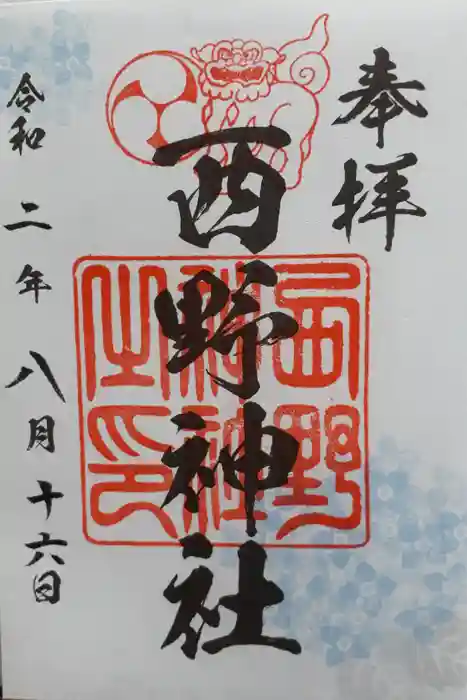 奉拝
西野神社
西野神社之印
令和二年八月十六日